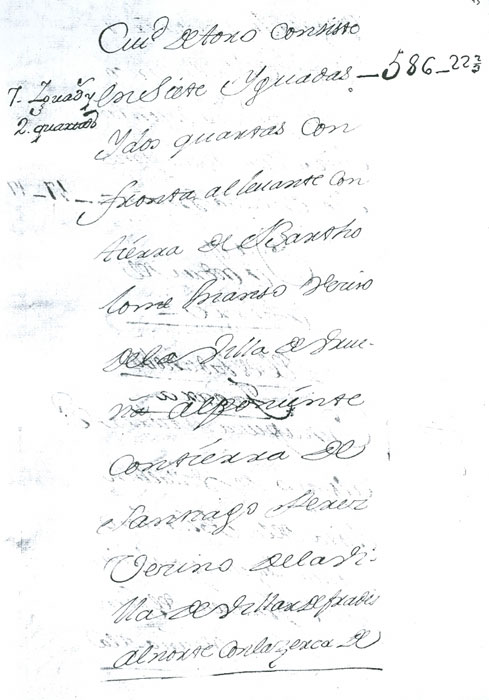 Ciud de toro Consiste
7. Yguadas y en Siete Yguadas – 586 – 22 2/3
2. quartas Y dos quartas Con
fronta al levante con
tierra de Bartho
lome Manso Vecino
de la Villa de
al poniente
con tierra de
Santiago Perez
Vecino de la Vi-
lla de Villar de frades
al norte con la zerca de